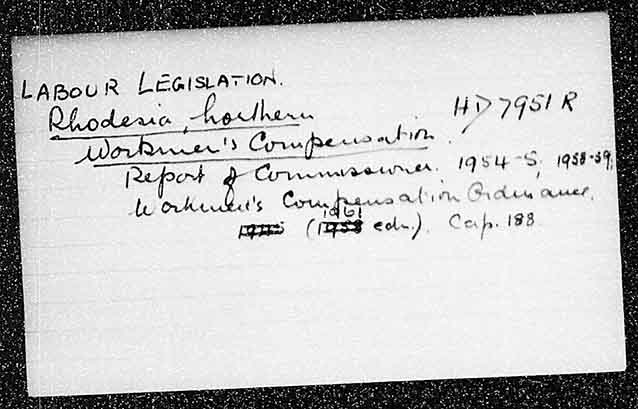 LABOUR LEGISLATION.
Rhodesia, Northern HD 7951 R
Workmen's Compensation.
Report of Commissioner. 1954-5, 1958-59,
Workmen's Compensation Ordinance,
1961
(1958 edn.). Cap. 188